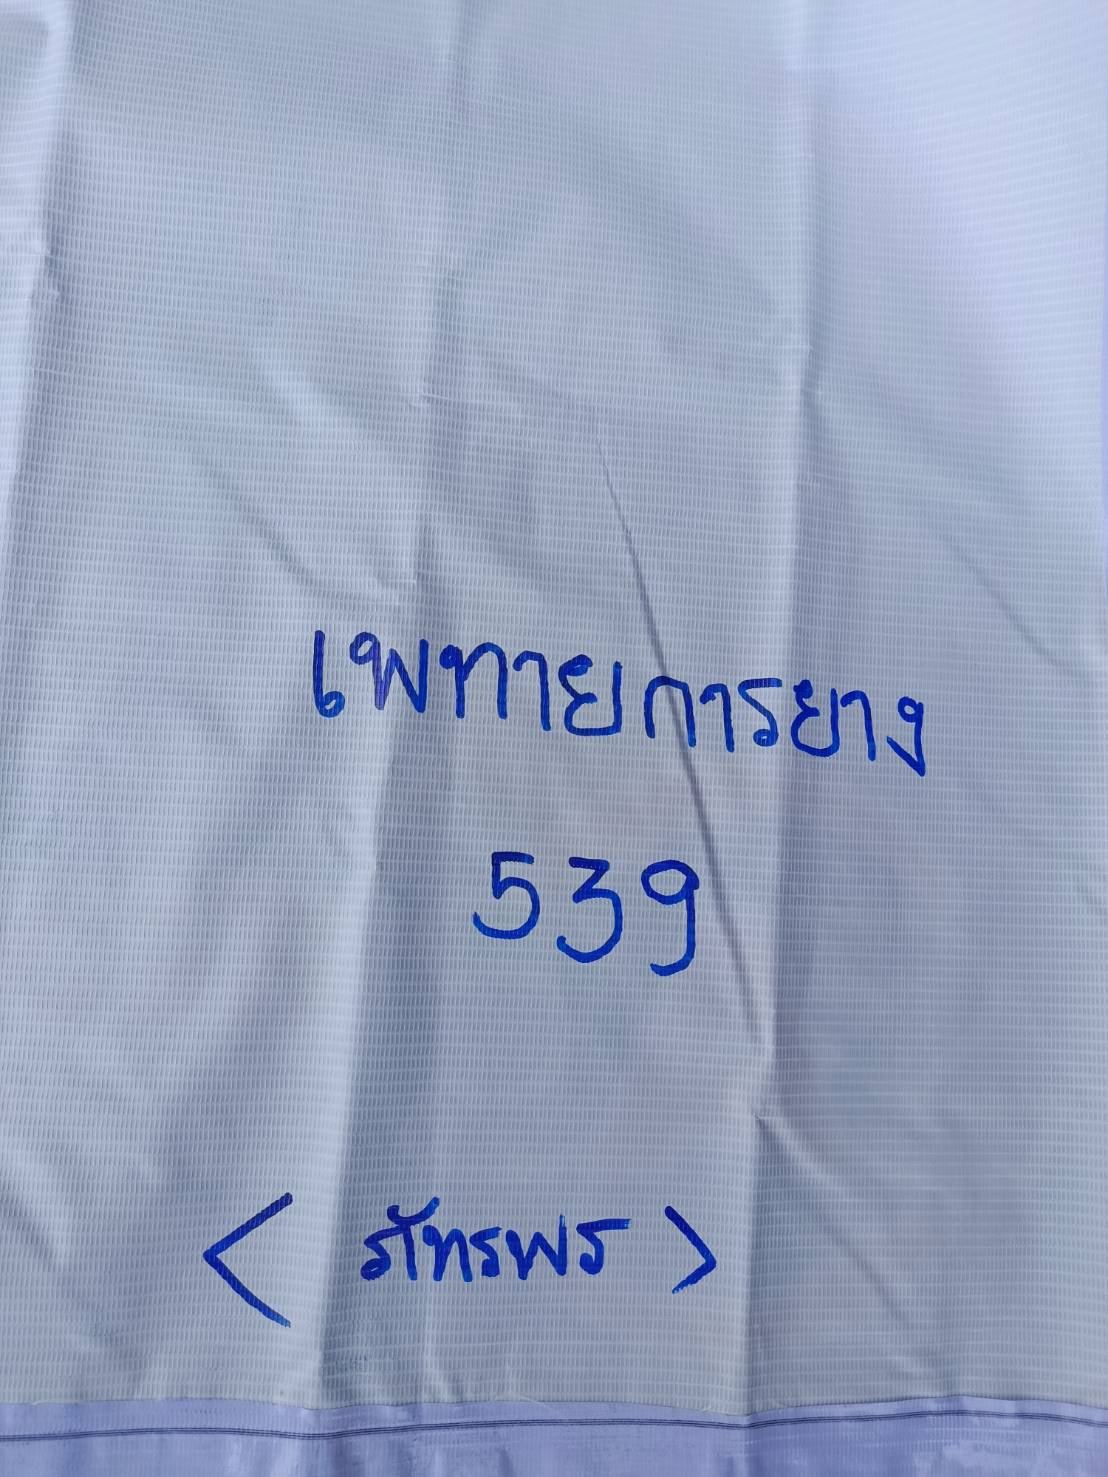 เพทายการยาง
539
< ภัทรพร >